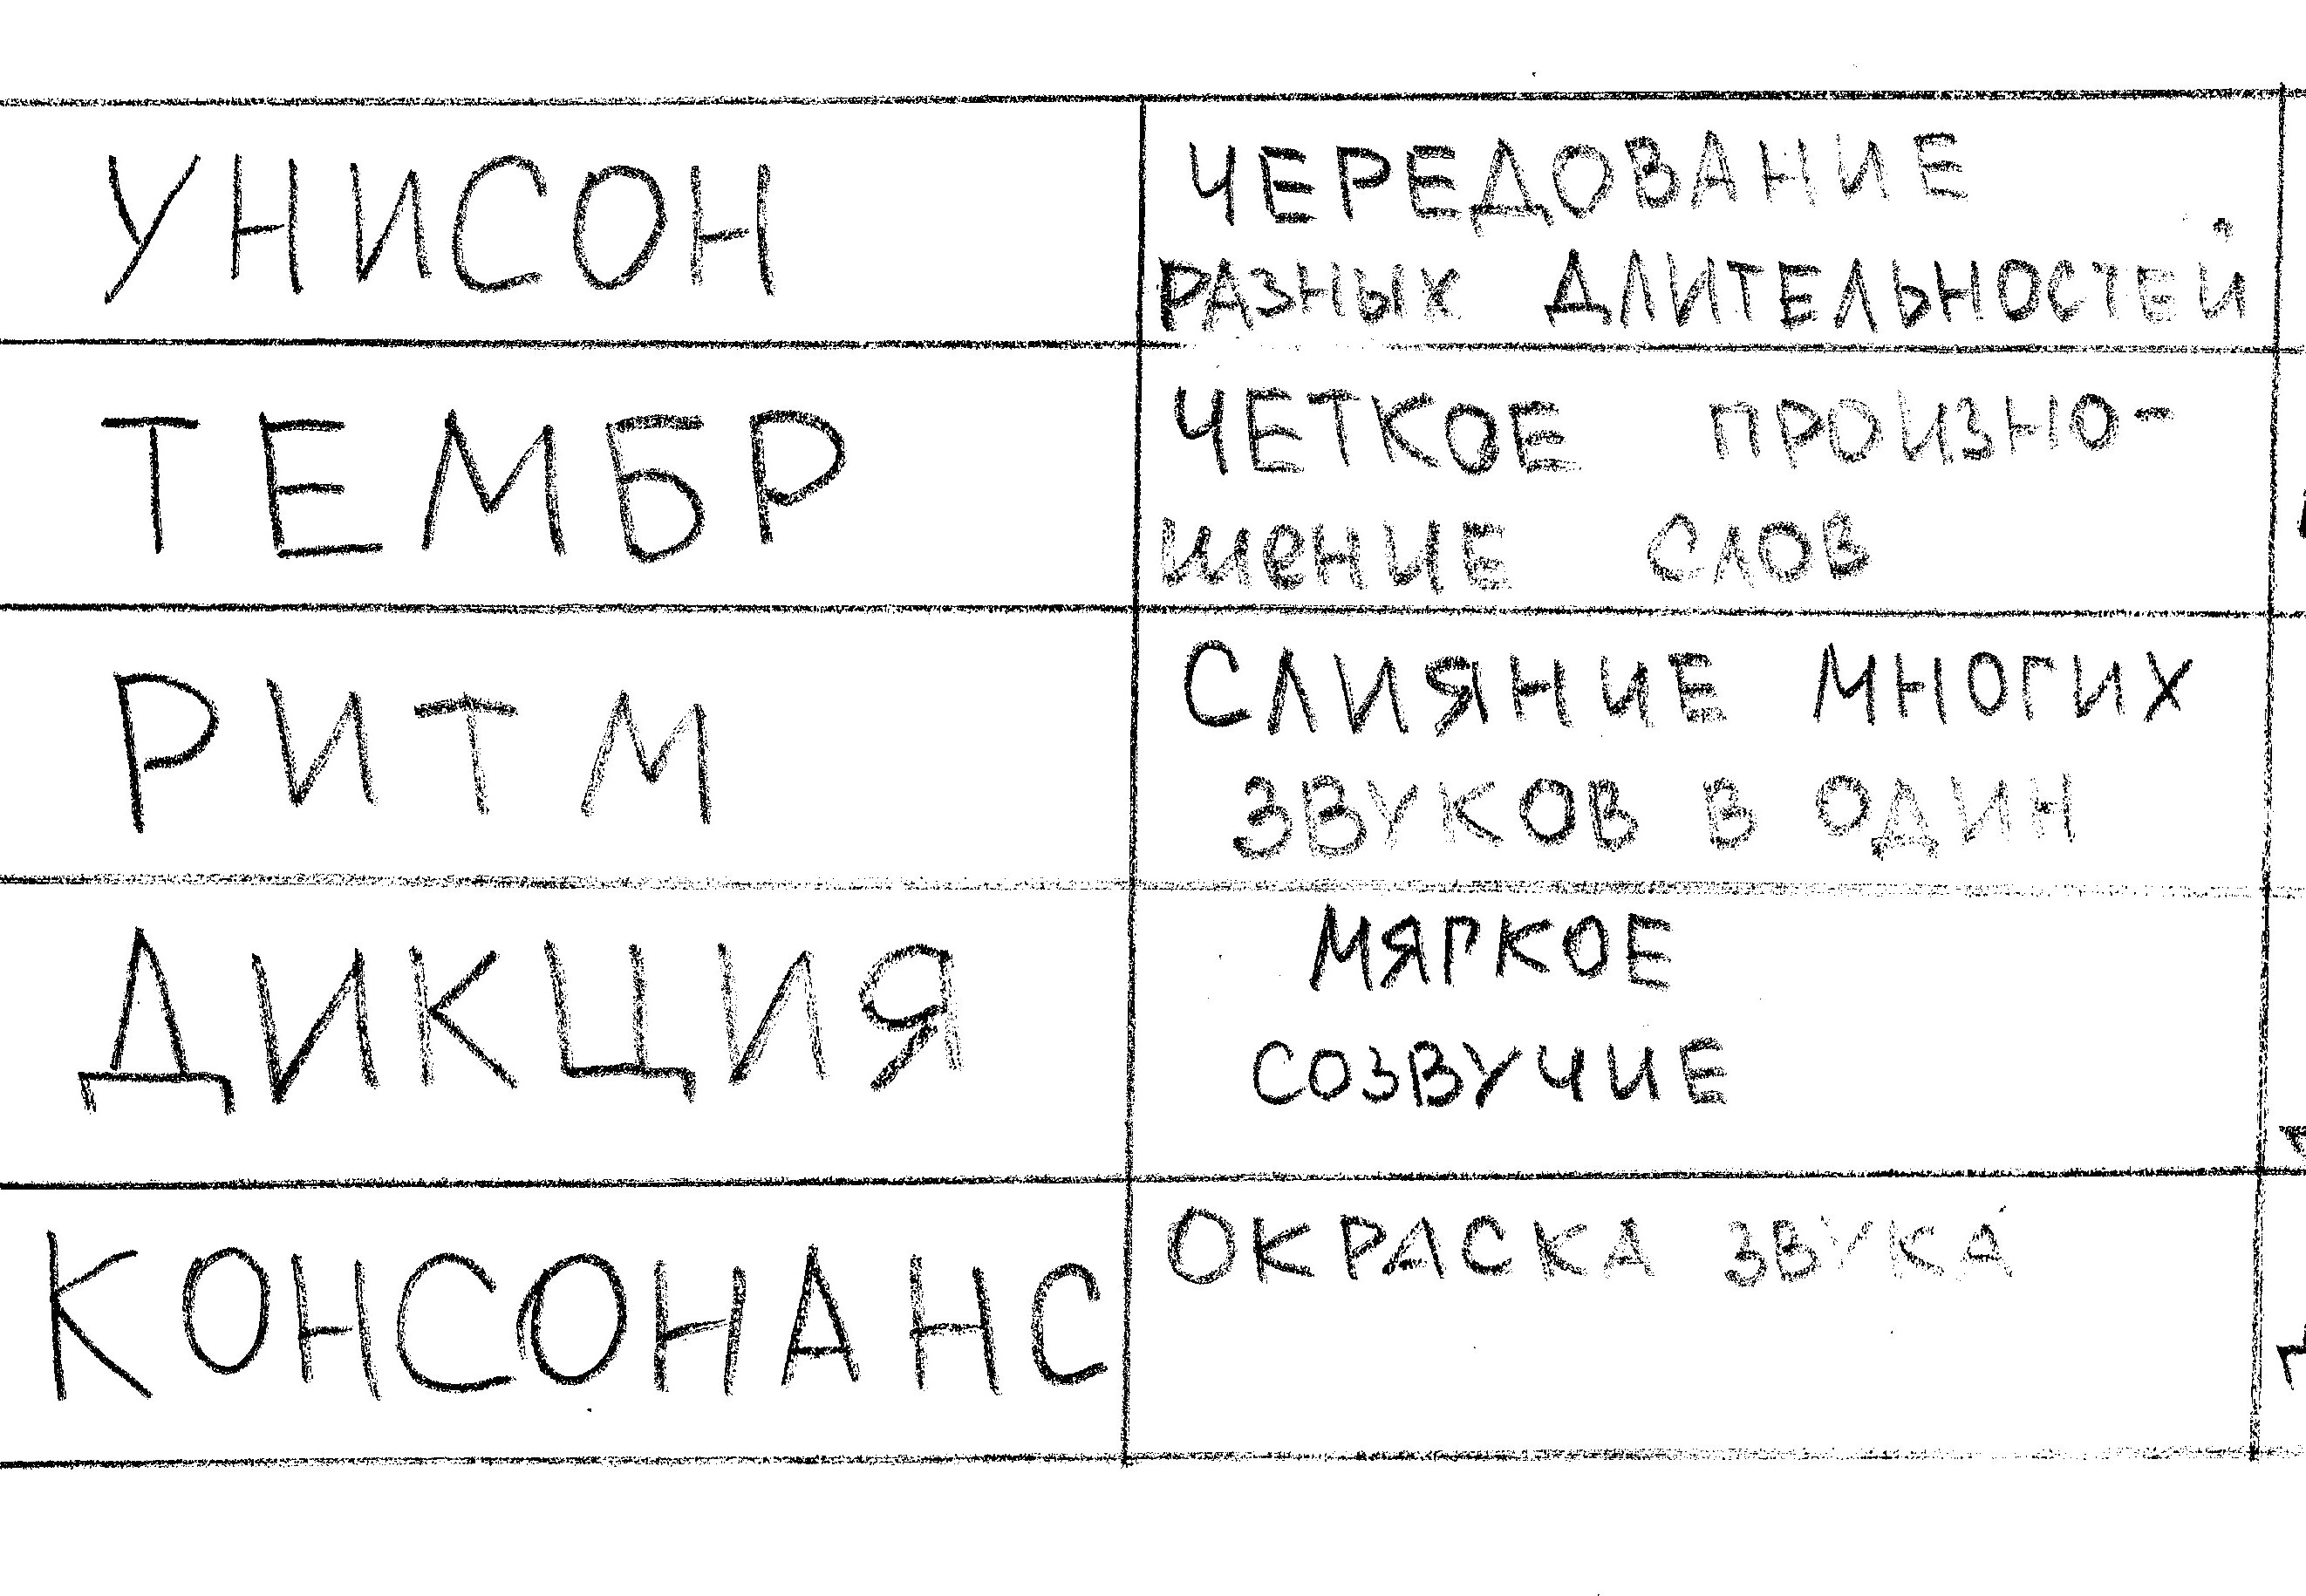 УНИСОН
ЧЕРЕДОВАНИЕ
РАЗНЫХ ДЛИТЕЛЬНОСТЕЙ
ТЕМБР
ЧЕТКОЕ ПРОИЗНО-
ШЕНИЕ СЛОВ
РИТМ
СЛИЯНИЕ МНОГИХ
ЗВУКОВ В ОДИН
ДИКЦИЯ
МЯГКОЕ
СОЗВУЧИЕ
КОНСОНАНС
ОКРАСКА ЗВУКА